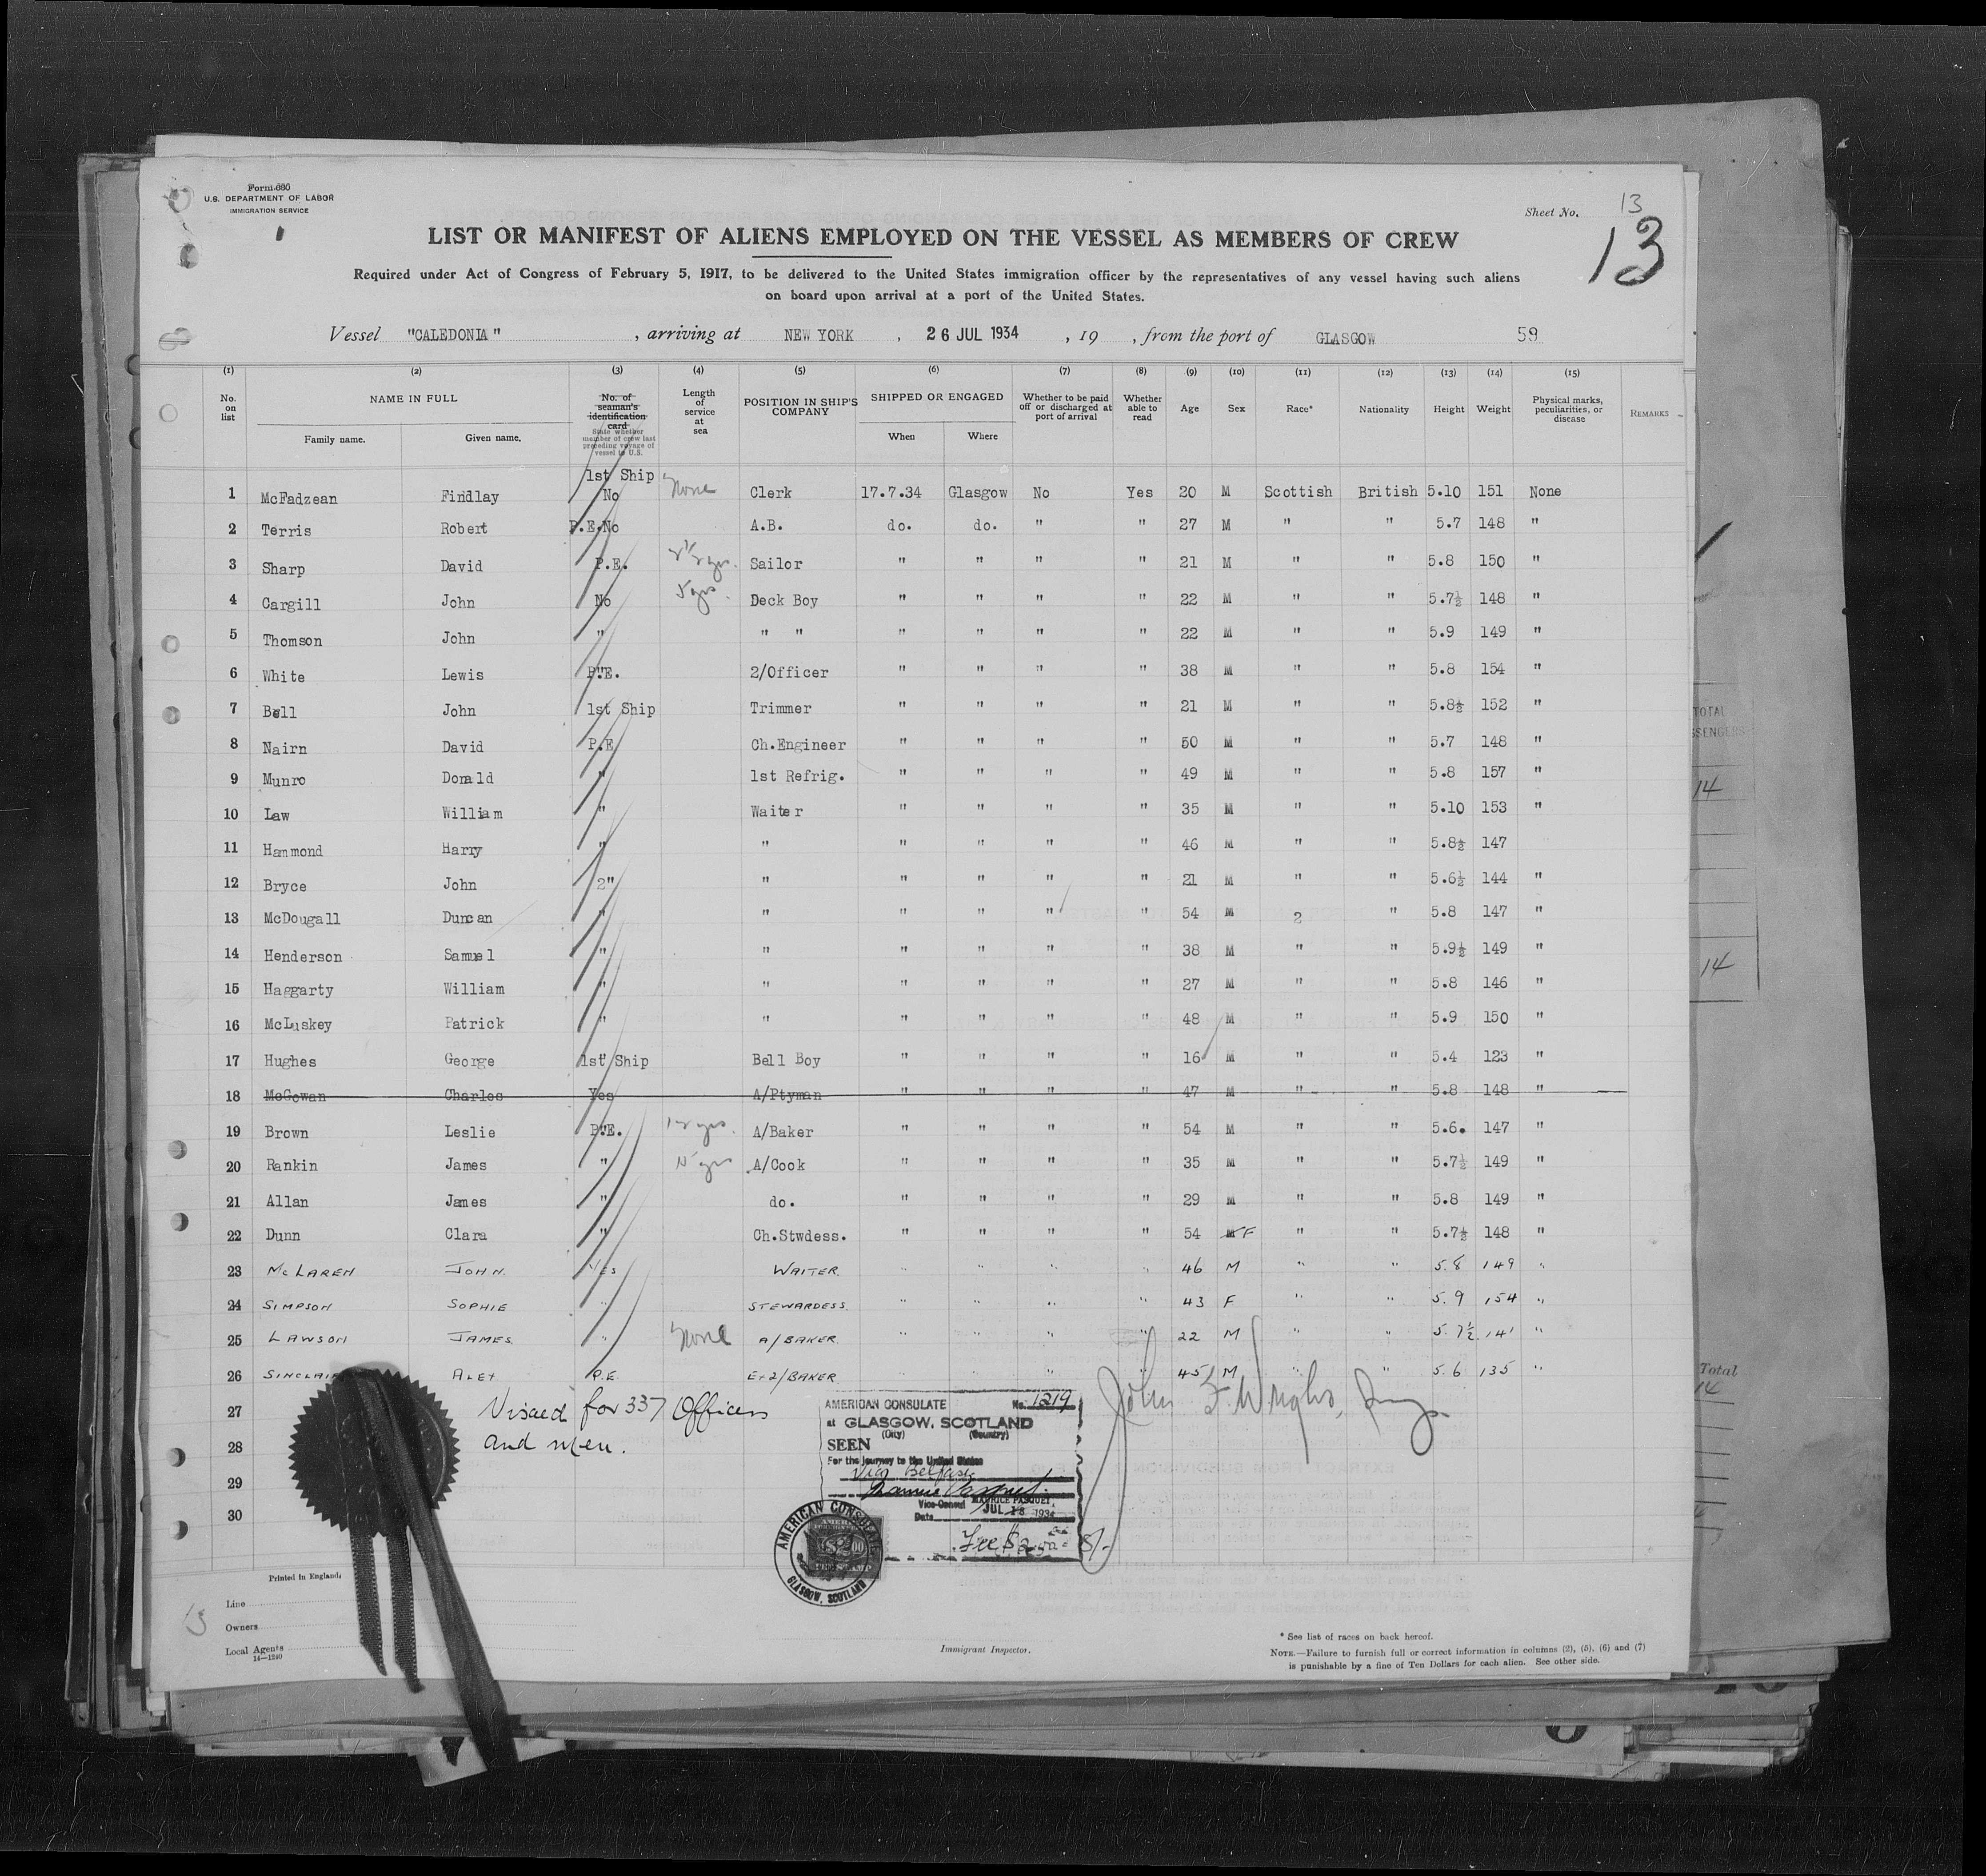 Form 680
U.S. DEPARTMENT OF LABOR
IMMIGRATION SERVICE
Sheet No. 13
13
LIST OR MANIFEST OF ALIENS EMPLOYED ON THE VESSEL AS MEMBERS OF CREW
Required under Act of Congress of February 5, 1917, to be delivered to the United States immigration officer by the representatives of any vessel having such aliens
on board upon arrival at a port of the United States.
Vessel "CALEDONIA" , arriving at NEW YORK , 26 JUL 1934 , 19 , from the port of GLASGOW 59
(1) (2) (3) (4) (5) (6) (7) (8) (9) (10) (11) (12) (13) (14) (15)
No. on list NAME IN FULL Family name. Given name. No. of seaman's identification card State whether member of crew last preceding voyage of vessel to U.S. Length of service at sea POSITION IN SHIP'S COMPANY SHIPPED OR ENGAGED When Where Whether to be paid off or discharged at port of arrival Whether able to read Age Sex Race* Nationality Height Weight Physical marks, peculiarities, or disease REMARKS
1st Ship
1 McFadzean Findlay No None Clerk 17.7.34 Glasgow No Yes 20 M Scottish British 5.10 151 None
2 Terris Robert P.E.No A.B. do. do. " " 27 M " " 5.7 148 "
3 Sharp David P.E. Sailor " " " " 21 M " " 5.8 150 "
4 Cargill John No 5 yrs. Deck Boy " " " " 22 M " " 5.7½ 148 "
5 Thomson John " " " " " " " 22 M " " 5.9 149 "
6 White Lewis P.E. 2/Officer " " " " 38 M " " 5.8 154 "
7 Bell John 1st Ship Trimmer " " " " 21 M " " 5.8½ 152 "
8 Nairn David P.E Ch.Engineer " " " " 50 M " " 5.7 148 "
9 Munro Donald " 1st Refrig. " " " " 49 M " " 5.8 157 "
10 Law William " Waiter " " " " 35 M " " 5.10 153 "
11 Hammond Harry " " " " " " 46 M " " 5.8½ 147
12 Bryce John 2" " " " " " 21 M " " 5.6½ 144 "
13 McDougall Duncan " " " " " " 54 M 2 " 5.8 147 "
14 Henderson Samuel " " " " " " 38 M " " 5.9½ 149 "
15 Haggarty William " " " " " " 27 M " " 5.8 146 "
16 McLuskey Patrick " " " " " " 48 M " " 5.9 150 "
17 Hughes George 1st" Ship Bell Boy " " " " 16 M " " 5.4 123 "
18 McGowan Charles Yes A/Ptyman " " " " 47 M " " 5.8 148 "
19 Brown Leslie P.E. 12 yrs. A/Baker " " " " 54 M " " 5.6. 147 "
20 Rankin James " 15 yrs A/Cook " " " " 35 M " " 5.7½ 149 "
21 Allan James " do. " " " " 29 M " " 5.8 149 "
22 Dunn Clara " Ch.Stwdess. " " " " 54 M F " " 5.7½ 148 "
23 McLAREN JOHN. YES WAITER. " " " " 46 M " " 5.8 149 "
24 SIMPSON SOPHIE " STEWARDESS. " " " " 43 F " " 5.9 154 "
25 LAWSON JAMES. " None A/BAKER. " " " " 22 M " " 5.7½ 141 "
26 SINCLAIR ALEX P.E. Ex2/BAKER " " " " 45 M " " 5.6 135 "
27 Visaed for 337 Officers
28 and men.
29
30
AMERICAN CONSULATE No. 1219
at GLASGOW, SCOTLAND
(City) (Country)
SEEN
For the journey to the United States
Via Belfast
Maurice Pasquet
Vice-Consul MAURICE PASQUET.
Date JUL 18 1934
Fee $2.00 = 8/-
AMERICAN CONSULATE
GLASGOW, SCOTLAND
AMERICAN
$2.00
FEE STAMP
John F. Wright,
Printed in England.
13
Line
Owners
Local Agents
14—1240
Immigrant Inspector.
* See list of races on back hereof.
NOTE.—Failure to furnish full or correct information in columns (2), (5), (6) and (7)
is punishable by a fine of Ten Dollars for each alien. See other side.
TOTAL
14
14
Total
14